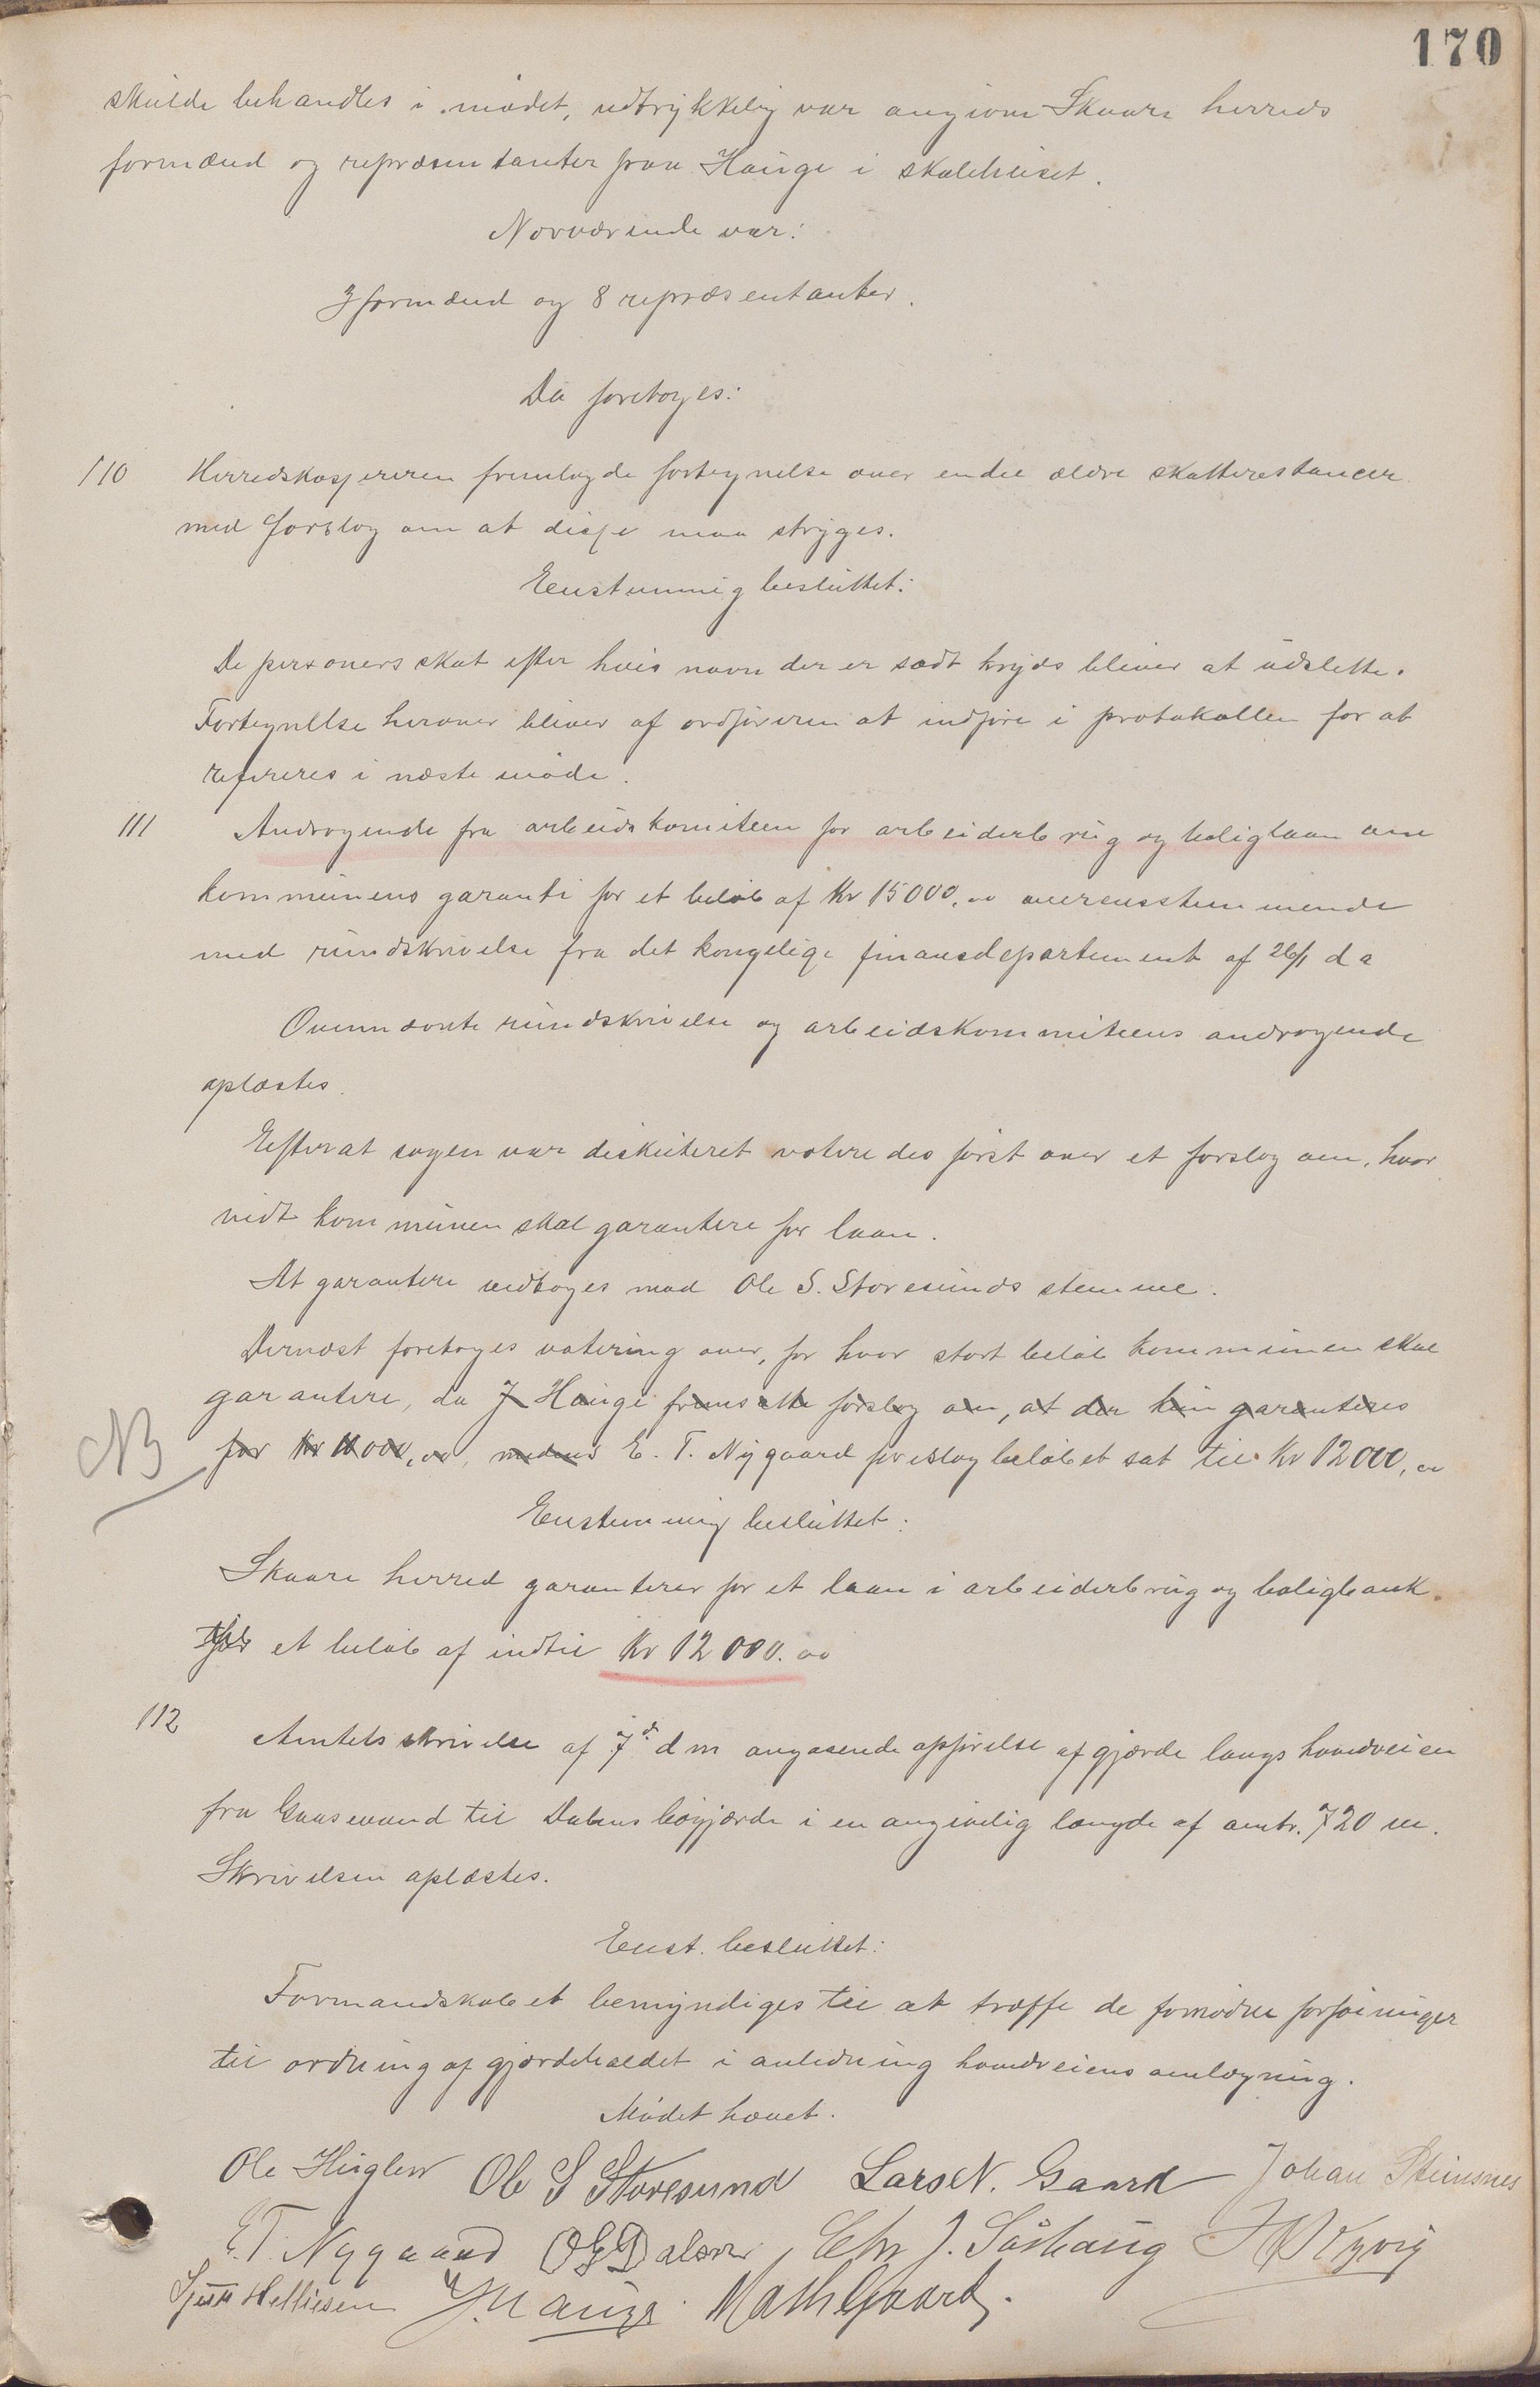 170
skulde behandles i mødet, udtrykkelig var angiven Skaare herreds
formænd og repræsentanter paa Hauge i skolehuset.
Nærværende var:
3 formænd og 8 repræsentanter.
Da foretoges:
110 Herredskasjereren fremlagde fortegnelse over endel ældre skatterestancer
med forslag om at disse maa stryges.
Eenstemmig besluttet:
De personers skat efter hvis navn der er sædt kryds bliver at udslette.
Fortegnelse herover bliver af ordføreren at indføre i protokollen for at
refereres i næste møde.
111 Andragende fra arbeidskomiteen for arbeiderbrug og boliglaan om
kommunens garanti for et beløb af Kr 15000,00 overensstemmende
med rundskrivelse fra det kongelige finansdepartement af 26/1 d a
Ovennævnte rundskrivelse og arbeidskommiteens andragende
oplæstes.
Efterat sagen var diskuteret voteredes først over et forslag om, hvor
vidt kommunen skal garantere for laan.
At garantere vedtoges mod Ole S. Storesunds stemme.
Dernæst foretoges votering over, for hvor stort beløb kommunen skal
garantere, da J Hauge fremsatte forslag om, at der kun garanteres
NB for Kr 10000,00, medens E. T. Nygaard foreslog beløbet sat til Kr 12000,00
Enstemmig besluttet:
Skaare herred garanterer for et laan i arbeiderbrug og boligbank
for et beløb af indtil Kr 12000.00
112 Amtets skrivelse af 7de d m angaaende opførelse af gjærde langs hovedveien
fra Gaasevand til Dalens bøgjærde i en angivelig længde af omtr. 720 m.
Skrivelsen oplæstes.
Enst. besluttet:
Formandskabet bemyndiges til at træffe de fornødne forføininger
til ordning af gjærdeholdet i anledning hovedveiens omlægning.
Mødet hævet.
Ole Ole S Storesund Lars N. Gaard Johan Steinsnes
E.T. Nygaard O G Dalsver Chr J. Sørhaug
Helliesen J. Hauge Math Gaard.